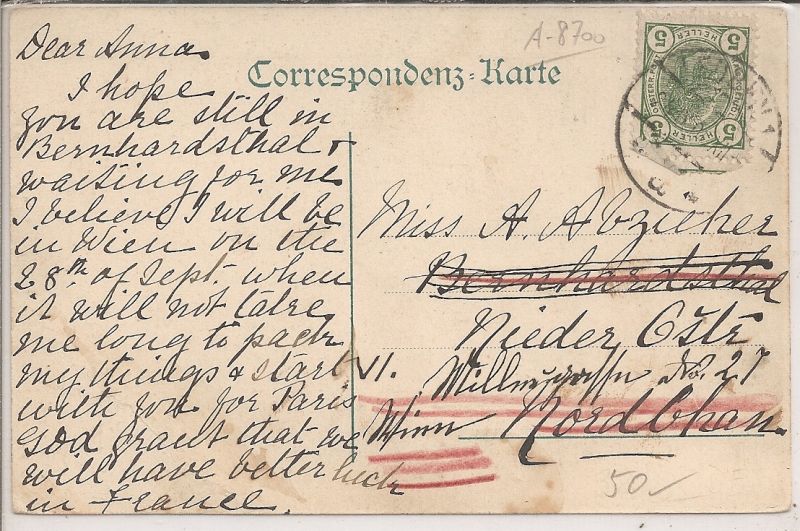 Dear Anna
I hope
you are still in
Bernhardsthal &
waiting for me
I believe I will be
in Wien on the
28th of Sept. when
it will not take
me long to pack
my things & start
with you for Paris
God grant that we
will have better luck
in France.
A-8700
Correspondenz-Karte
5 5
HELLER HELLER
5 5
Miss A. Abzieher
Bernhardsthal
Nieder Östr
VI. No. 27
Wien
Nordbhan.
50